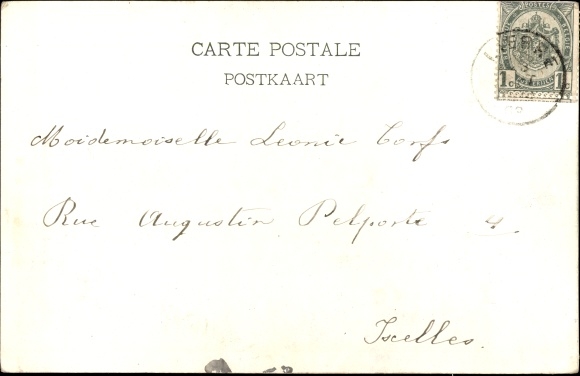 CARTE POSTALE
POSTKAART
1 1
Moidemoiselle Leonie Corfs
Rue Augustin Pelporte 4
Ixelles.